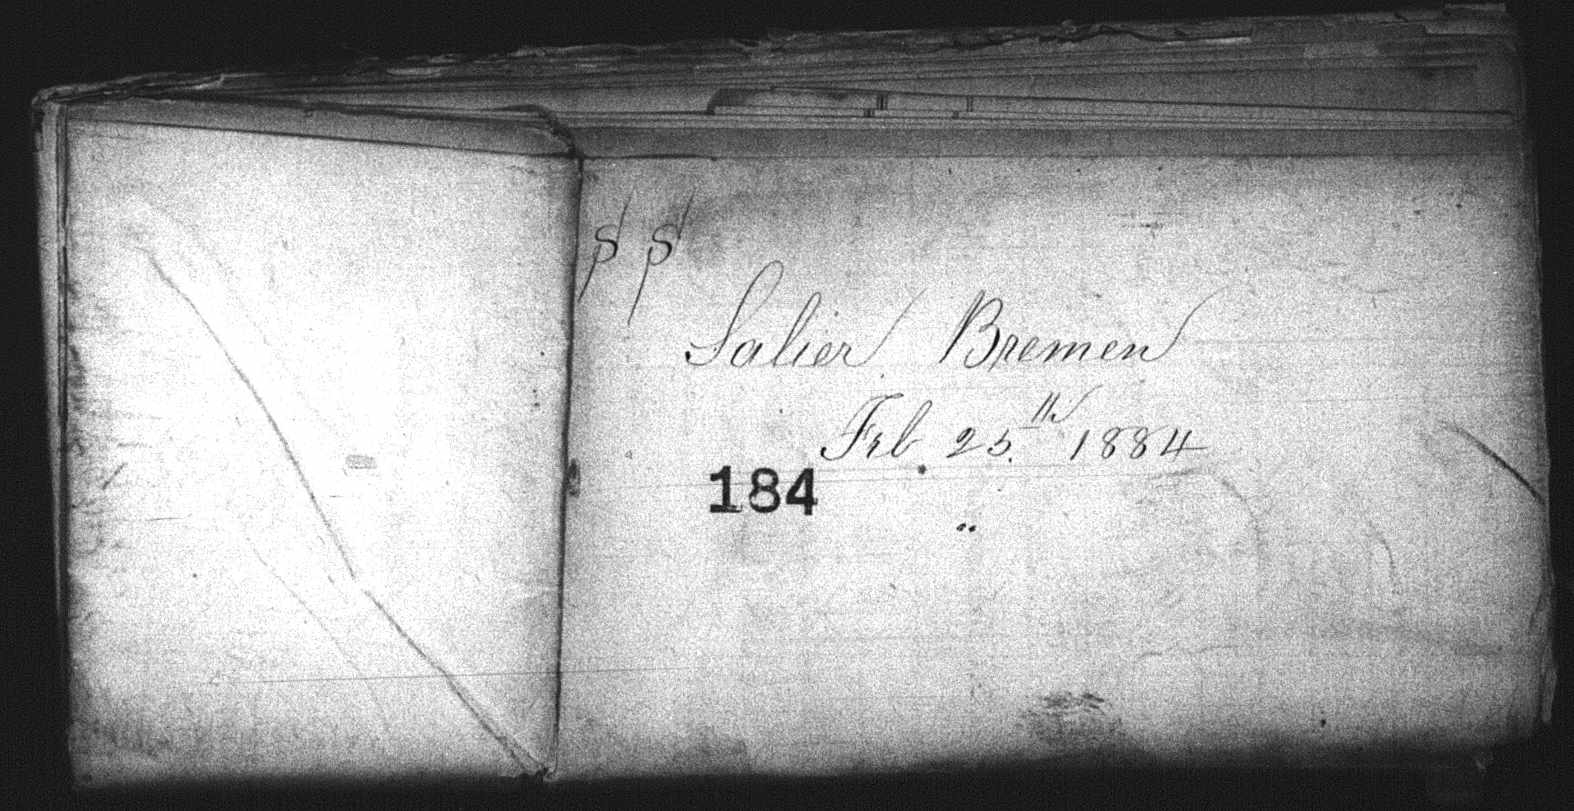 SS
Salier Bremen
Feb 25th 1884
184
"